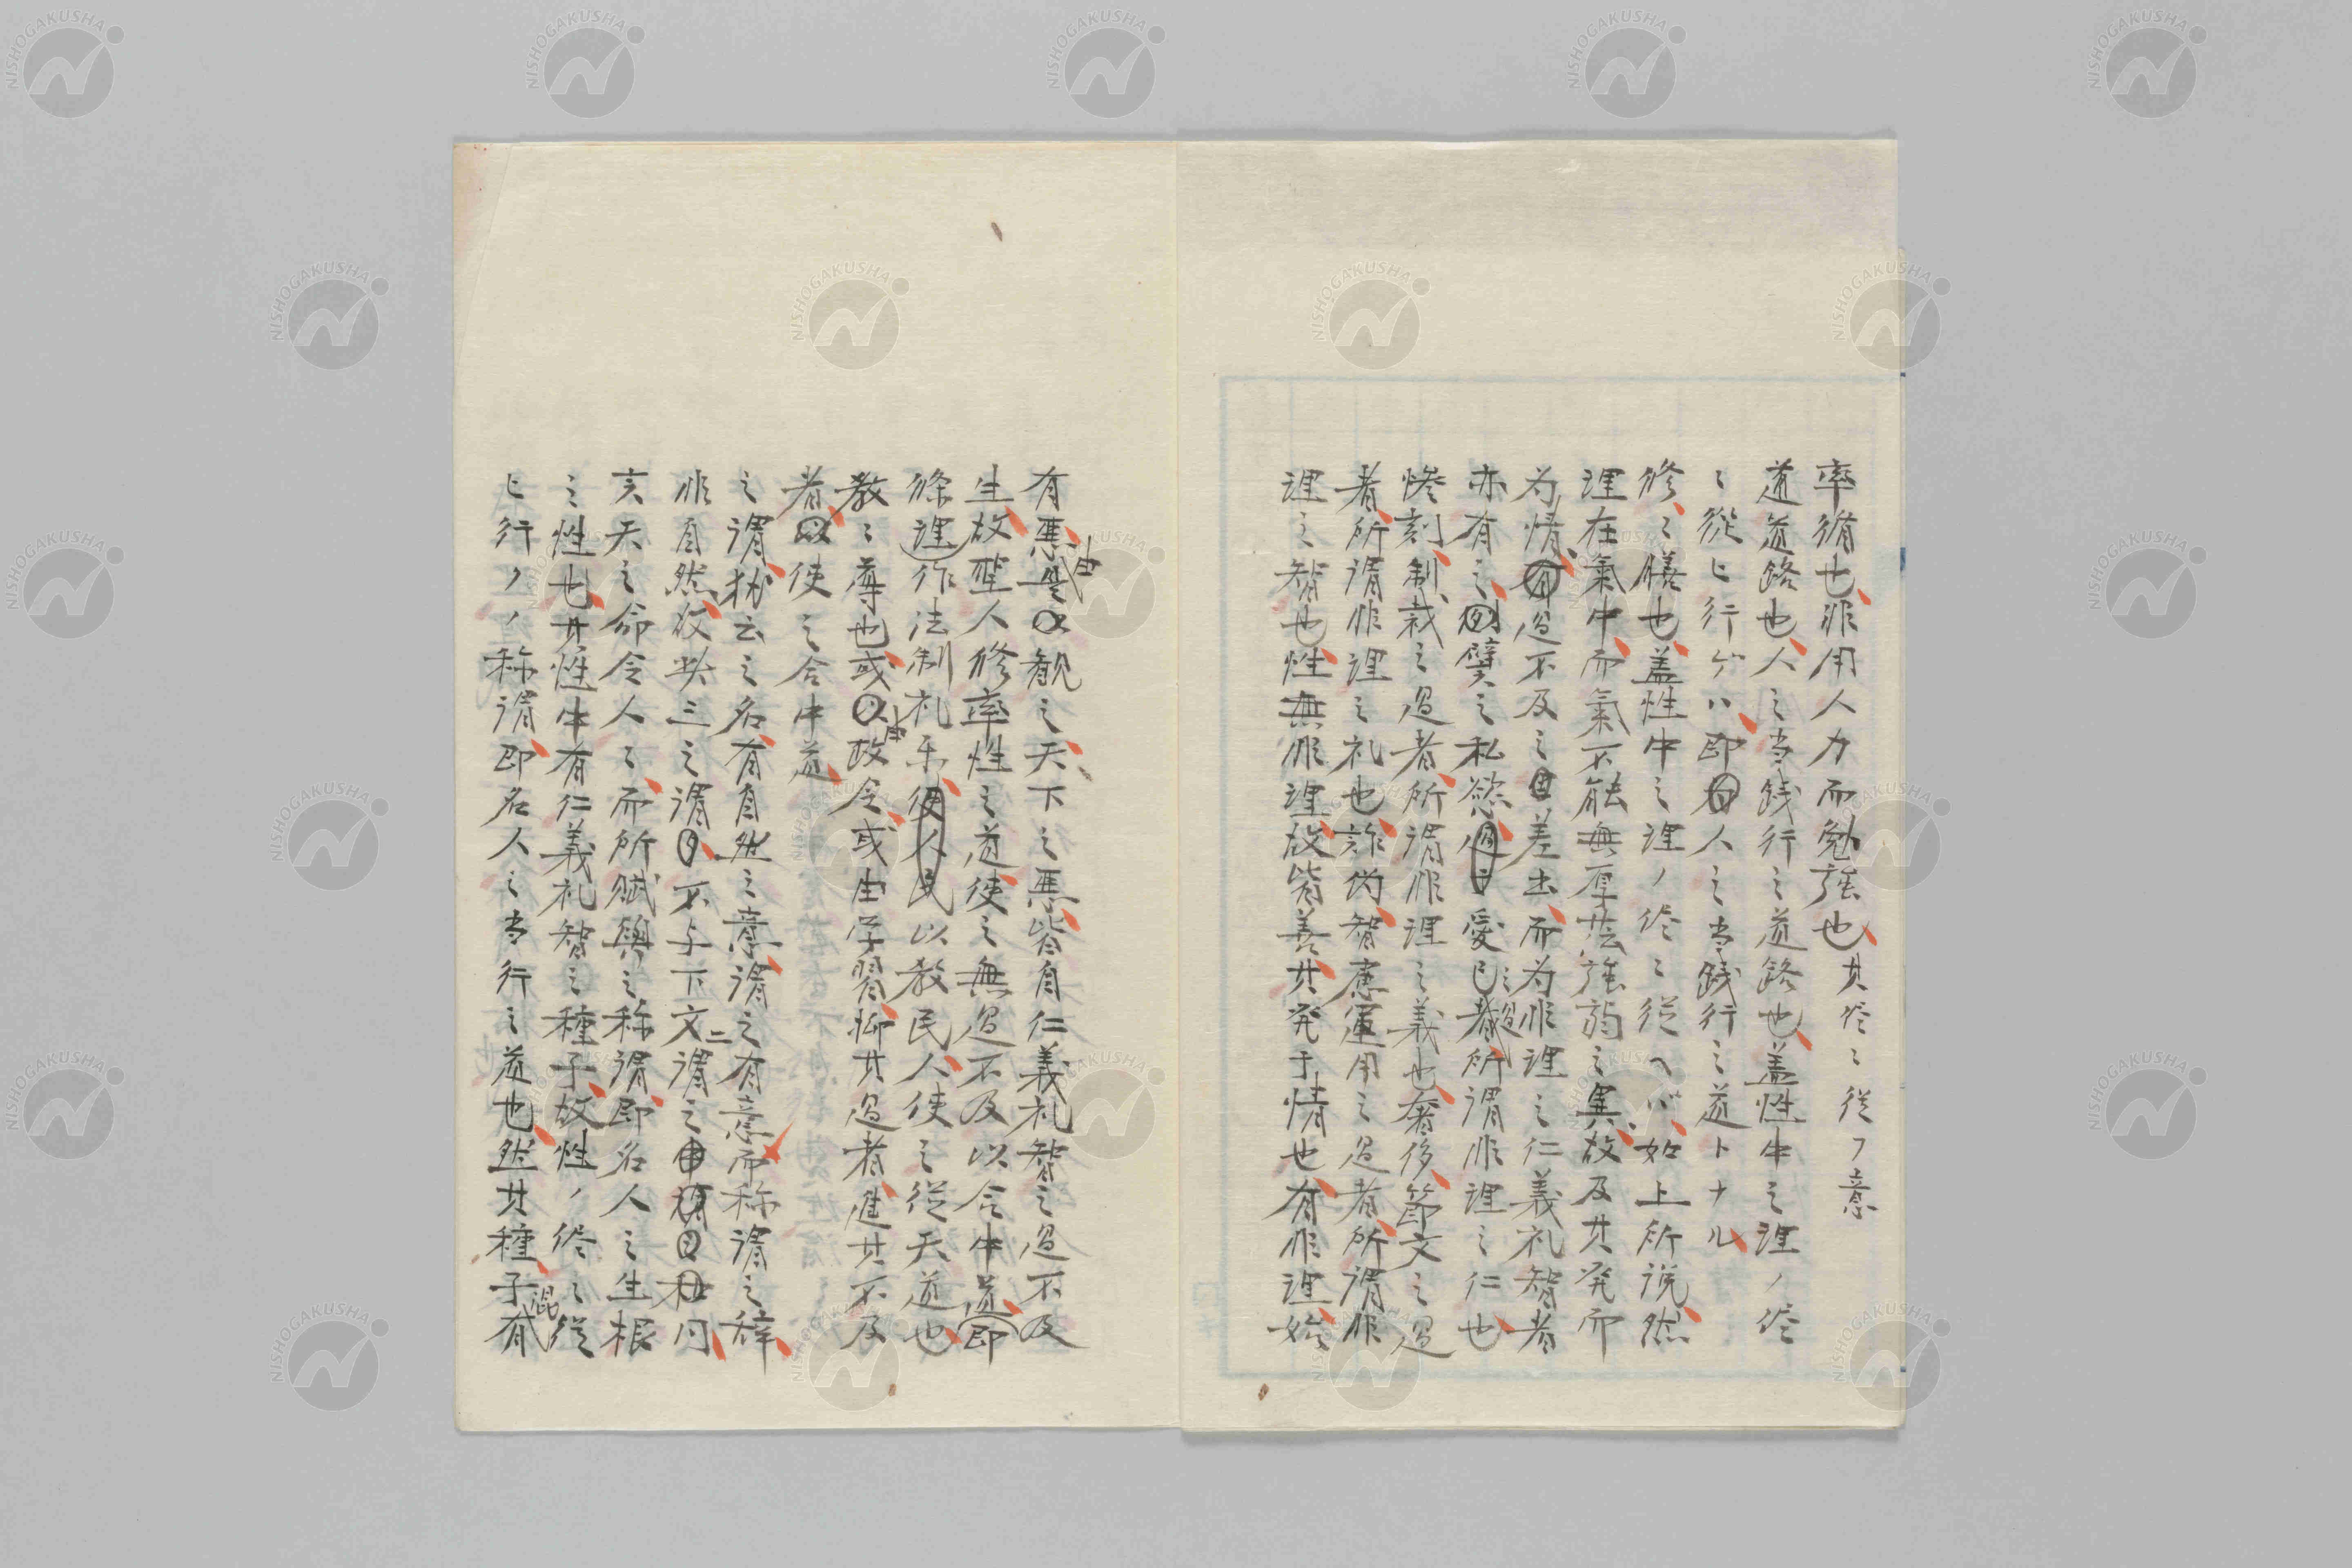 率循也非用人力而勉強也其侭ニ従フ意
道道路也人之当践行之道路也蓋性中之理ノ侭
ニ従ヒ行ケハ即人之当践行之道トナル
修ニ膳也蓋性中之理ノ侭ニ従ヘハ如上所説然
理在氣中而氣不能無厚薄強弱之異故及其発而
為情過不及之差出而為非理之仁義礼智者
亦有之譬之私慾愛己之過者所謂非理之仁也
惨刻制裁之過者所謂非理之義也奢侈節文之過
者所謂非理之礼也詐偽智慮運用之過者所謂非
理之智也性無非理故皆善其発于情也有非理始
有悪由是観之天下之悪皆自仁義礼智之過不及
生故聖人修率性之道使之無過不及以合中道即
條理作法制礼示以教民人使之従天道也
教ニ導也或由政令或由学習抑其過者進其不及
者使之合中道
之謂猶云之名有自然之意謂之有意而称謂之辞
非自然故此三之謂不与下文二謂之同
言天之命令人ニ而所賦與之称謂即名人之生根
之性也其性中有仁義礼智之種子故性ノ侭ニ従
ヒ行ノノ称謂即名人之当行之道也然其種子混有
NISHOGAKUSHA